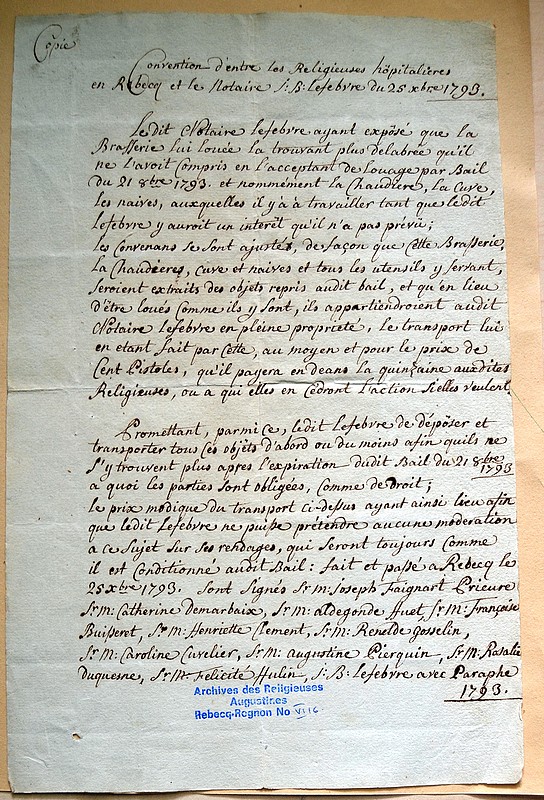 Copie
Convention d'entre les Religieuses hôpitalieres
en Rebecq et le Notaire J: B: Lefebvre du 25 xbre 1793.
Ledit Notaire Lefebvre ayant exposé que la
Brasserie lui louée la trouvant plus delabrée qu'il
ne l'avoit compris en l'acceptant de Louage par Bail
du 21 8bre 1793. et nommément la Chaudiere, la Cuve,
les naives, auxquelles il y'a à travailler tant que ledit
Lefebvre y auroit un interêt qu'il n'a pas prévu;
les Convenans se sont ajustés, de façon que Cette Brasserie,
la Chaudieres, cuve et naives et tous les utensils y servant,
seroient extraits des objets repris audit bail, et qu'en lieu
d'être loués Comme ils y sont, ils appartiendroient audit
Notaire Lefebvre en pleine proprieté, le transport lui
en etant fait par Cette, au moyen et pour le prix de
Cent Pistoles, qu'il payera en deans la quinçaine auxdites
Religieuses, ou a qui elles en Cédront l'action si elles veulent.
Promettant, parmi ce, ledit Lefebvre de dépôser et
transporter tous ces objets d'abord ou du moins afin quils ne
s'y trouvent plus apres l'expiration dudit Bail du 21 8bre
1793
a quoi les parties sont obligées, Comme de Droit;
le prix modique du transport ci-dessus ayant ainsi lieu afin
que ledit Lefebvre ne puisse prétendre aucune moderation
a ce sujet sur ses rendages, qui seront toujours Comme
il est Conditionné audit Bail: fait et passé a Rebecq le
25 xbre 1793. Sont Signés Sr M: Joseph Faignart Prieure
Sr M: Catherine Demarbaix, Sr M: aldegonde Huet, Sr M: Françoise
Buisseret, Sr M: Henriette Clement, Sr M: Renelde Gosselin,
Sr M: Caroline Cuvelier, Sr M: augustine Pierquin, Sr M: Rosalie
Duquesne, Sr M: Felicité Hulin, J: B: Lefebvre avec Paraphe
1793.
Archives des Religieuses
Augustines
Rebecq-Rognon No VI 16